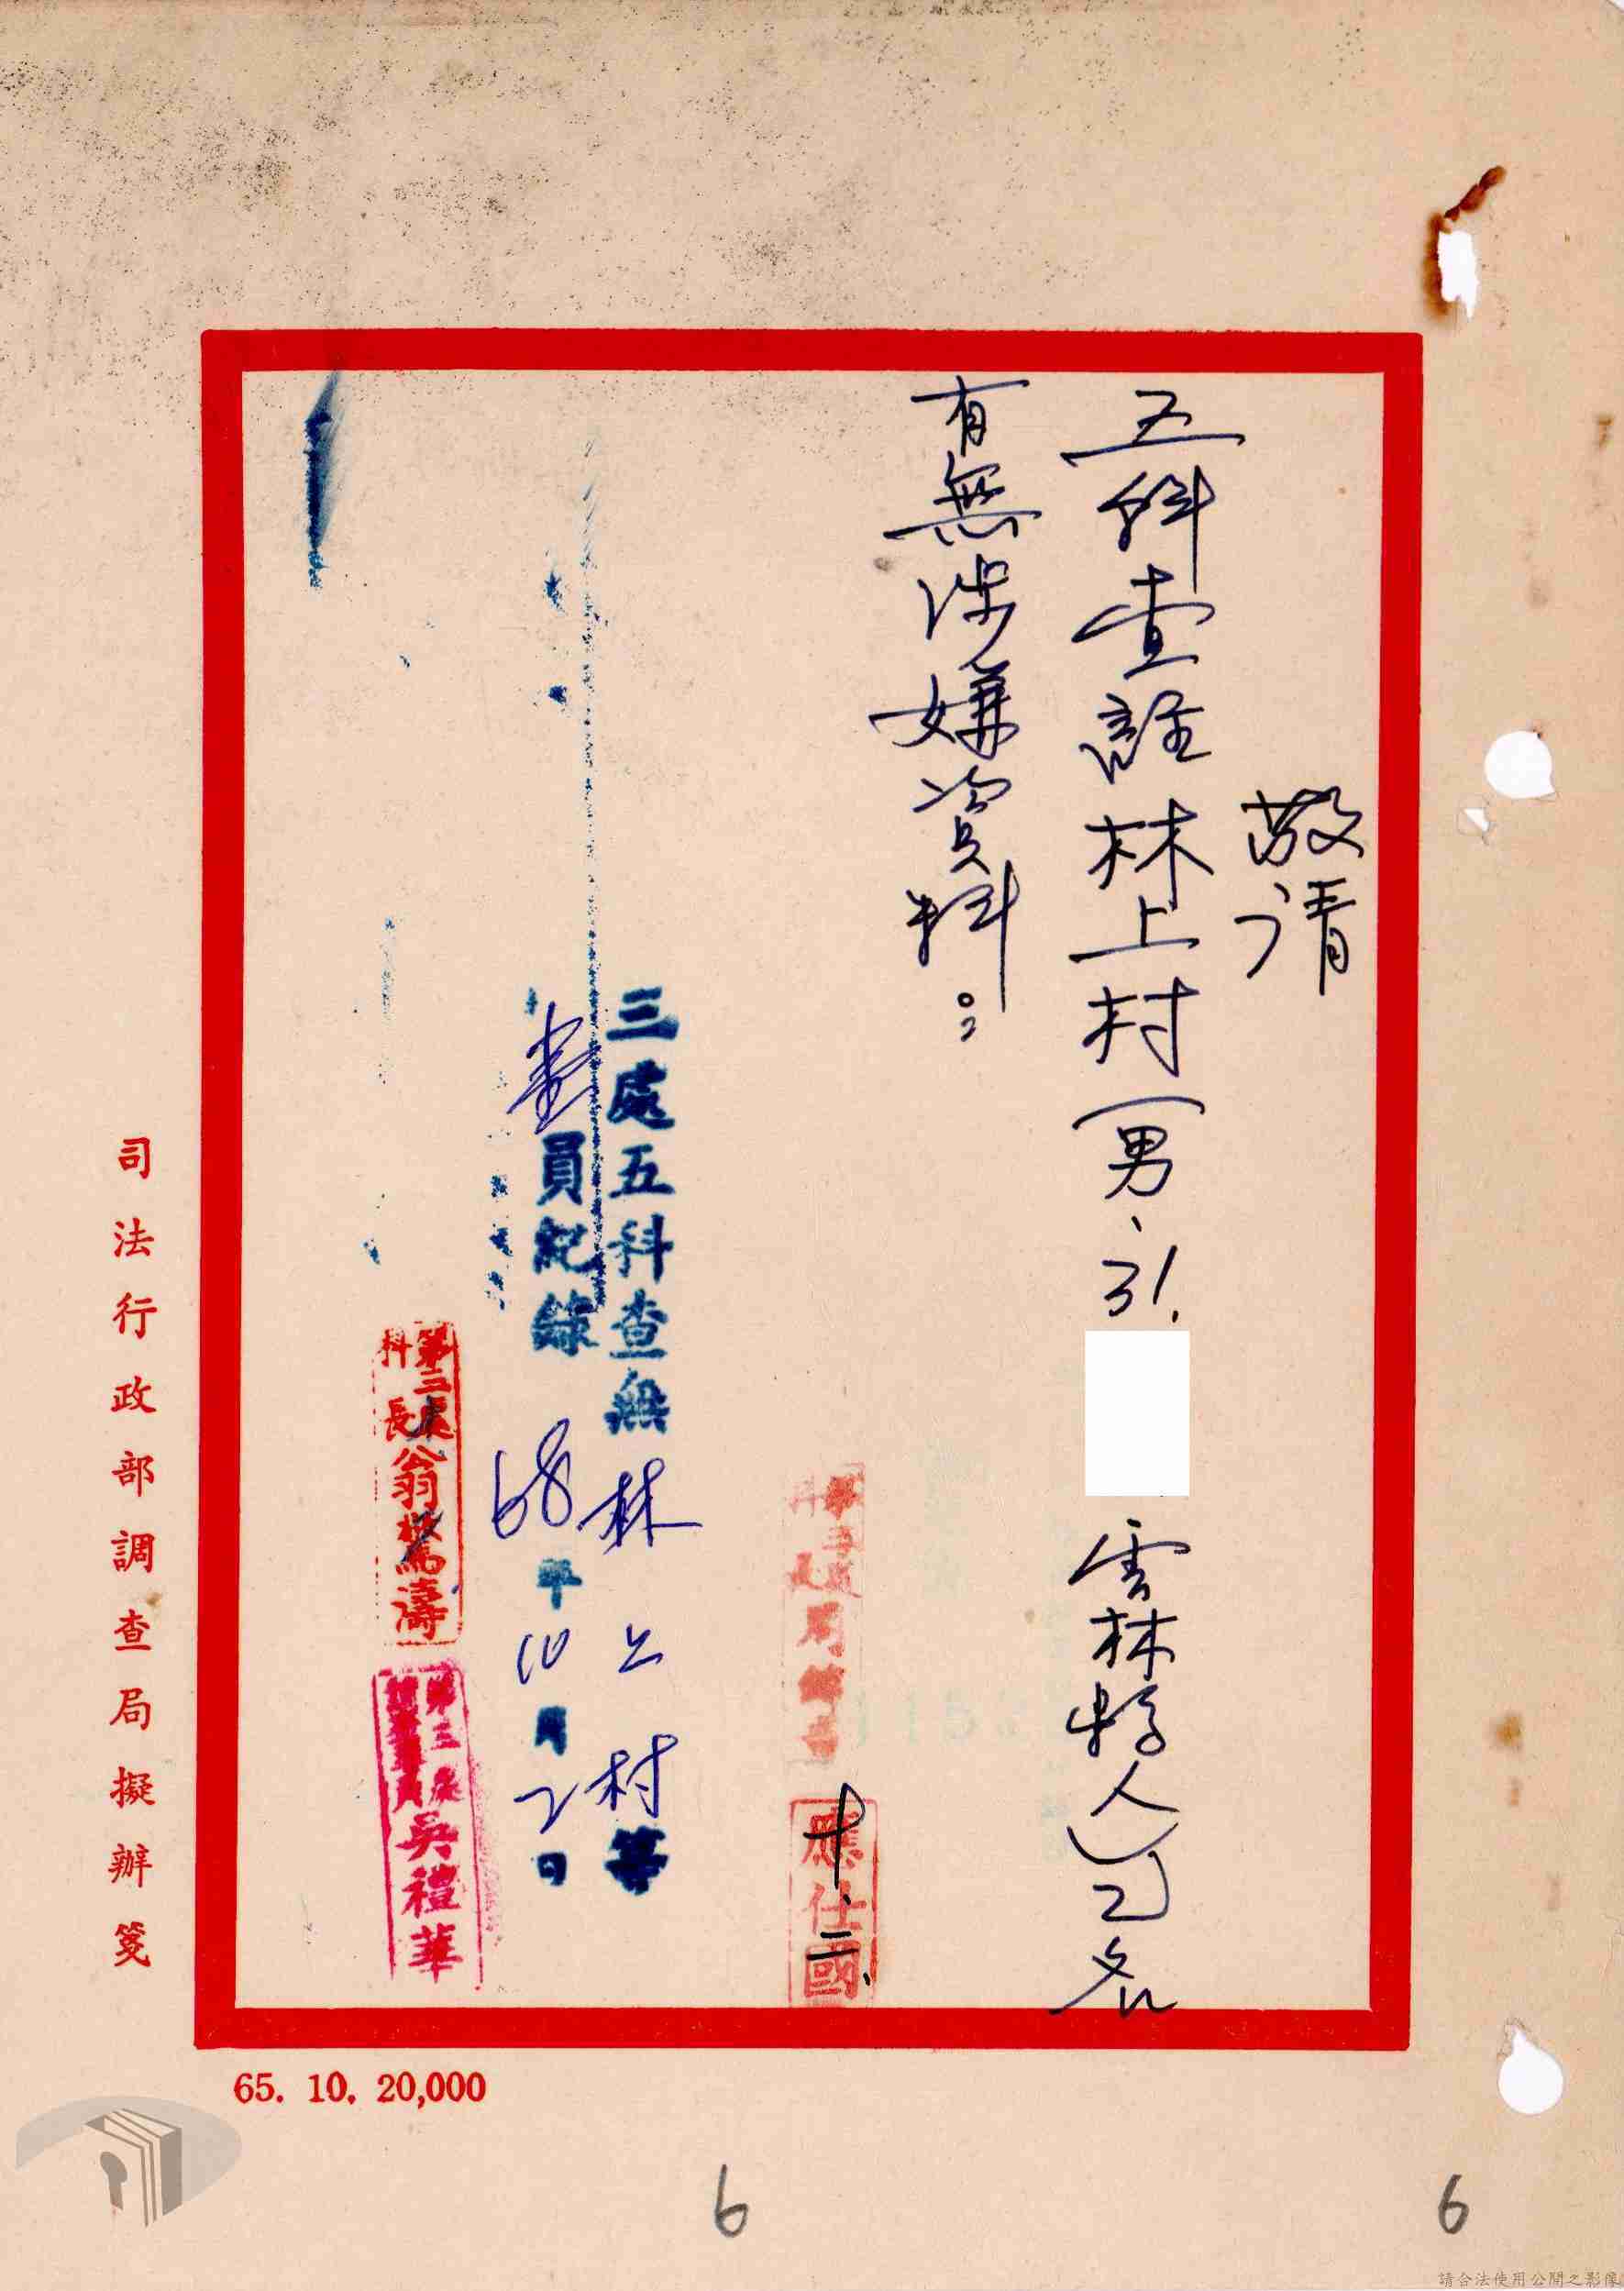 敬請
五科查註林上村（男、31.
雲林縣人）乙名
有無涉嫌資料：
應仕國
十、二、
三處五科查無林上村等
員記錄 68年10月2日
第三處
科長翁驚濤
第三處
吳禮華
司法行政部調查局擬辦箋
65. 10. 20,000
6
6
請合法使用公開之影像